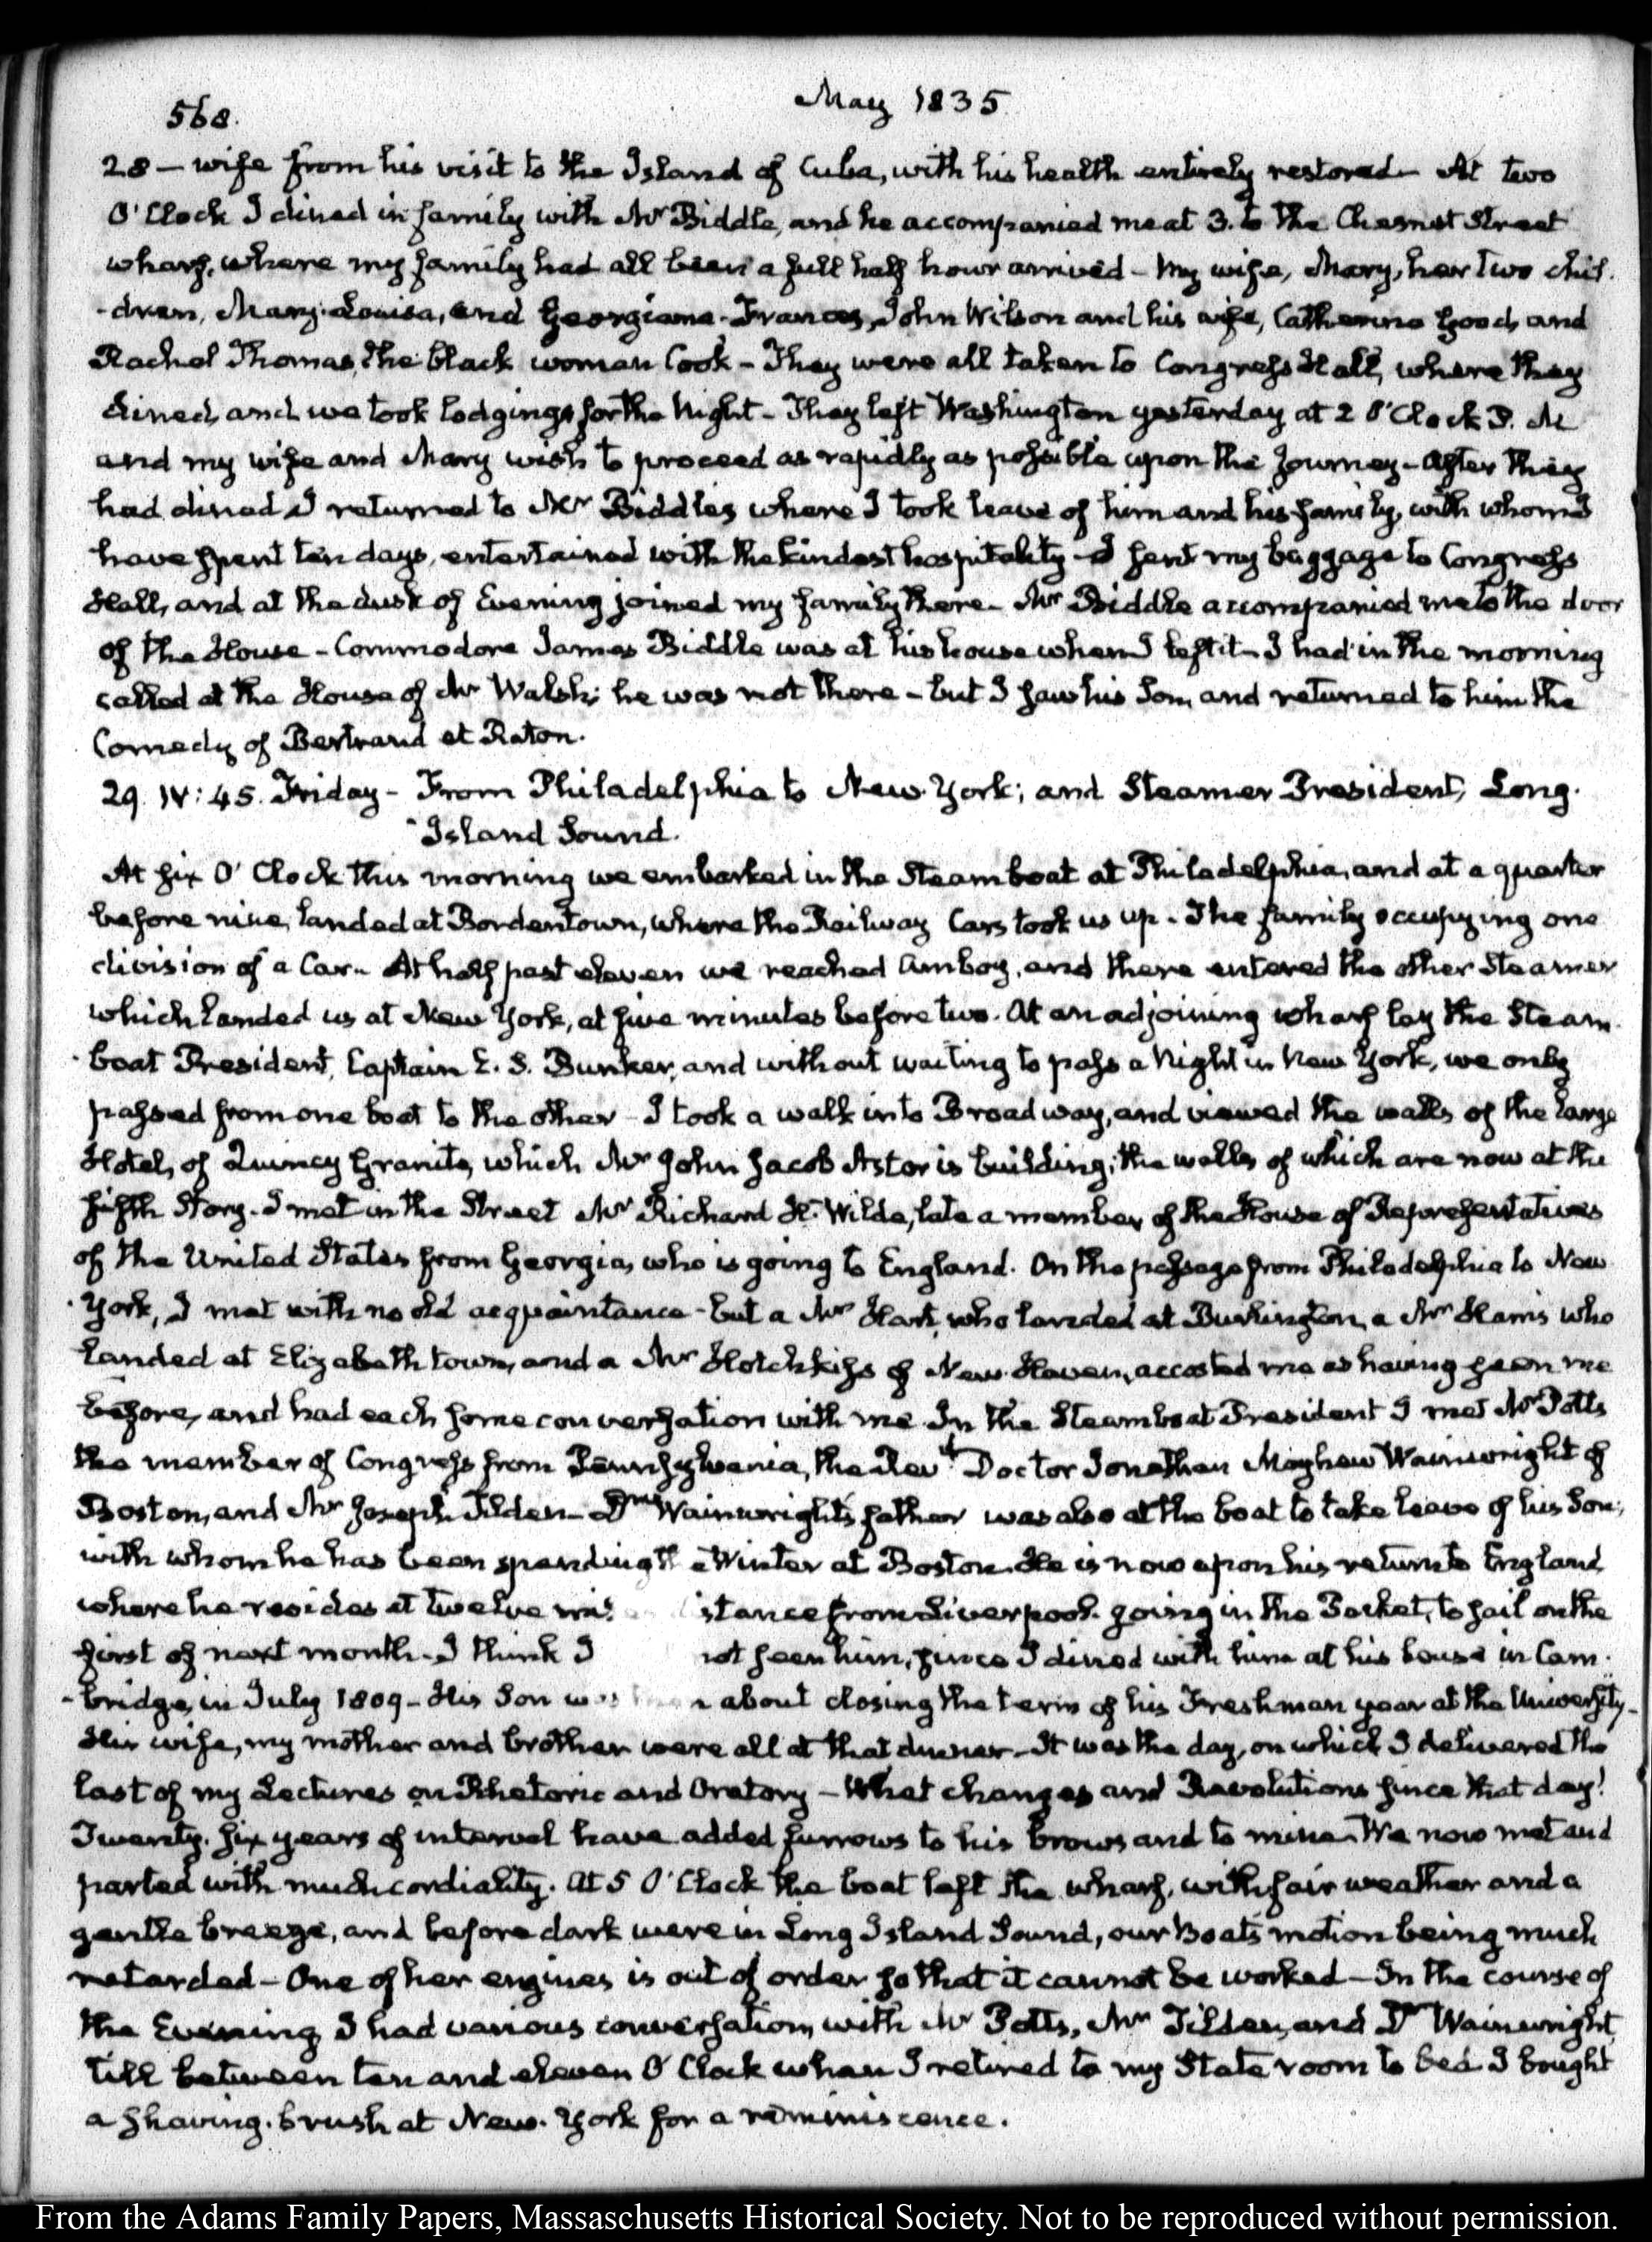 568.
May 1835
28 — wife from his visit to the Island of Cuba, with his health entirely restored — At two
O'Clock I dined in family with Mr Biddle, and he accompanied me at 3. to the Chesnut Street
wharf, where my family had all been a full half hour arrived — My wife, Mary, her two chil-
-dren, Mary-Louisa, and Georgiana-Frances, John Wilson and his wife, Catherine Gooch and
Rachel Thomas, the black woman Cook — They were all taken to Congress Hall, where they
dined, and we took lodgings for the Night — They left Washington yesterday at 2 O'Clock P. M
and my wife and Mary wish to proceed as rapidly as possible upon the journey — After they
had dined I returned to Mr Biddle's where I took leave of him and his family, with whom I
have spent ten days, entertained with the kindest hospitality — I sent my baggage to Congress
Hall, and at the dusk of Evening joined my family there — Mr Biddle accompanied me to the door
of the House — Commodore James Biddle was at his house when I left it — I had in the morning
called at the House of Mr Walsh; he was not there — but I saw his Son, and returned to him the
Comedy of Bertrand et Raton.
29. IV: 45. Friday — From Philadelphia to New-York; and Steamer President, Long-
Island Sound.
At six O'Clock this morning we embarked in the Steamboat at Philadelphia, and at a quarter
before nine, landed at Bordentown, where the Railway Cars took us up — The family occupying one
division of a Car — At half past eleven we reached Amboy, and there entered the other Steamer
which landed us at New York, at five minutes before two. At an adjoining wharf lay the Steam-
-boat President, Captain E. S. Bunker, and without waiting to pass a Night in New York, we only
passed from one boat to the other — I took a walk into Broadway, and viewed the walls of the large
Hotel, of Quincy Granite, which Mr John Jacob Astor is building; the walls of which are now at the
fifth Story. I met in the Street Mr Richard H. Wilde, late a member of the House of Representatives
of the United States from Georgia, who is going to England. On the passage from Philadelphia to New-
-York, I met with no old acquaintance — but a Mr Hart, who landed at Burlington, a Mr Harris who
landed at Elizabeth town, and a Mr Hotchkiss of New-Haven, accosted me as having seen me
before, and had each some conversation with me. In the Steamboat President I met Mr Potts
the member of Congress from Pennsylvania, the Revd Doctor Jonathan Mayhew Wainwright of
Boston, and Mr Joseph Tilden — Dr Wainwright's father was also at the boat to take leave of his Son;
with whom he has been spending the Winter at Boston. He is now upon his return to England
where he resides at twelve istance from Liverpool. going in the Packet, to sail on the
first of next month — I think I not seen him, since I dined with him at his house in Cam-
-bridge, in July 1809 — His Son was then about closing the term of his Freshman year at the University —
His wife, my mother and brother were all at that dinner — It was the day, on which I delivered the
last of my Lectures on Rhetoric and Oratory — What changes and Revolutions since that day!
Twenty-six years of interval have added furrows to his brows and to mine. We now met and
parted with much cordiality. At 5 O'Clock the boat left the wharf, with fair weather and a
gentle breeze, and before dark were in Long Island Sound, our Boat's motion being much
retarded — One of her engines is out of order so that it cannot be worked — In the course of
the Evening I had various conversation, with Mr Potts, Mr Tilden, and Dr Wainwright,
till between ten and eleven O'Clock when I retired to my State room to bed. I bought
a shaving-brush at New-York for a reminiscence.
From the Adams Family Papers, Massaschusetts Historical Society. Not to be reproduced without permission.